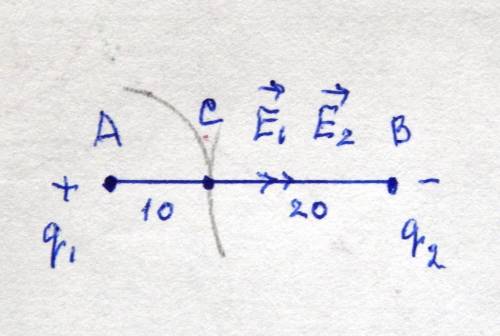 A C E⃗₁ E⃗₂ B
+ −
10 20
q₁ q₂